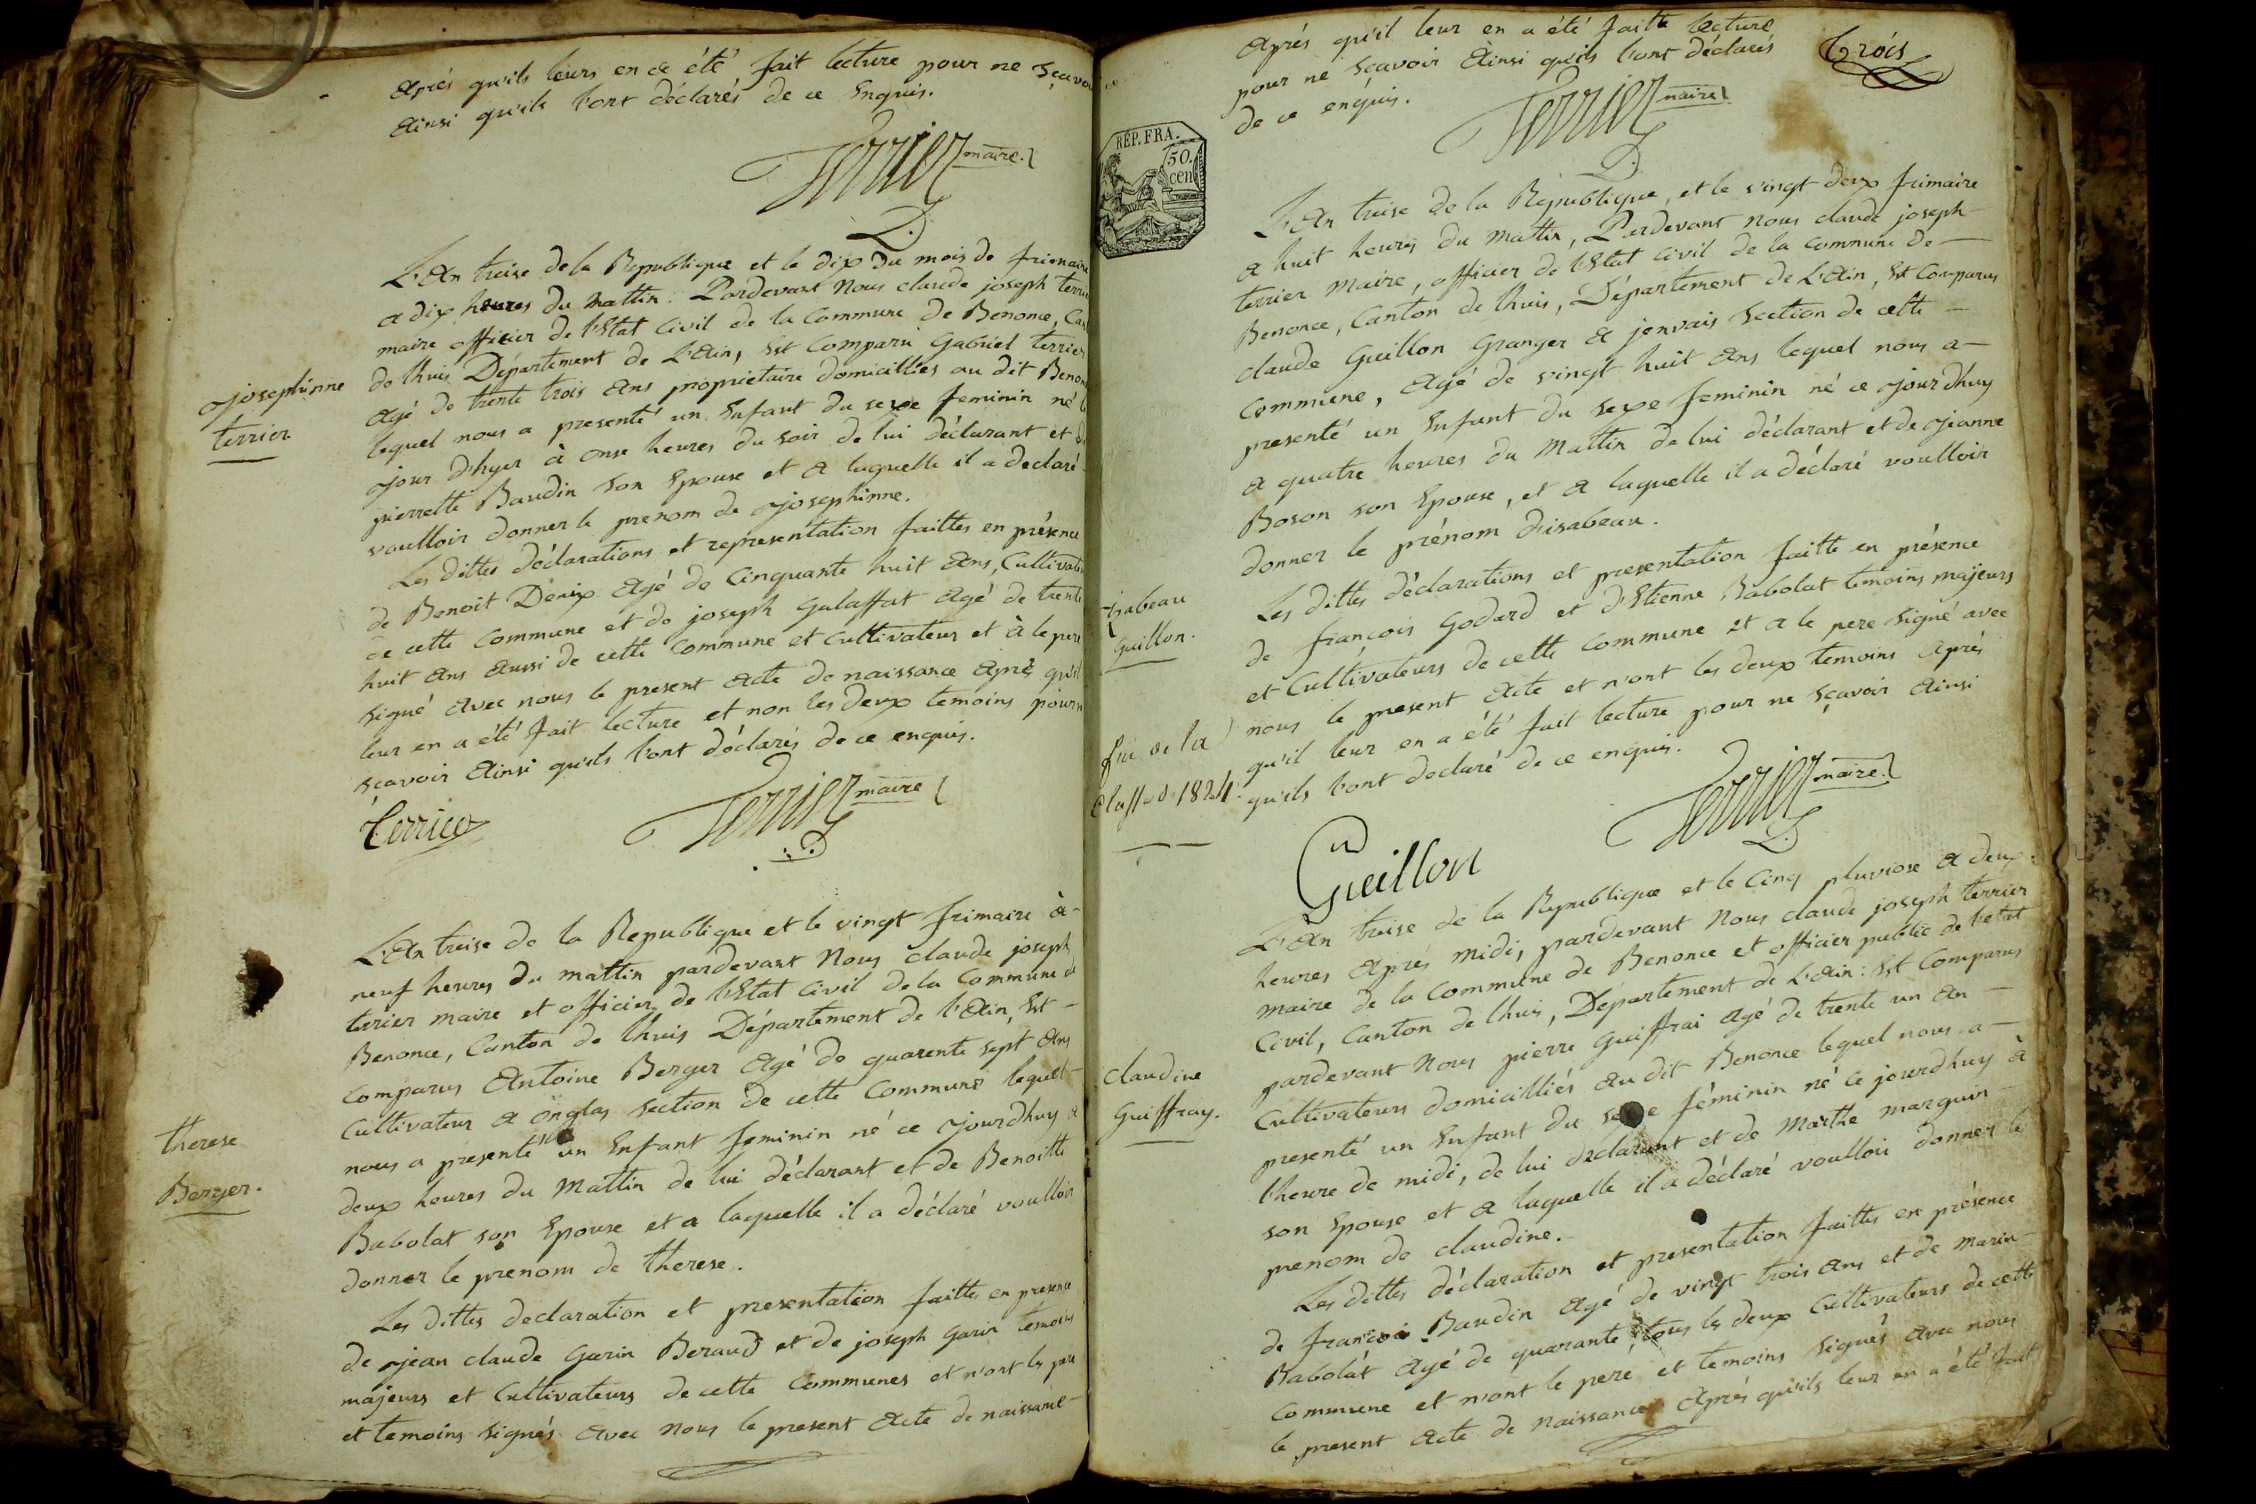 Après qu'ils leurs en a été fait lecture pour ne sçavoir
Ainsi qu'ils l'ont déclarés de ce Enquis.
Terrier maire
L'An treise de la Republique et le dix du mois de frimaire
a dix heures du mattin. Pardevant Nous claude joseph terrier
maire officier de l'Etat Civil de la Commune de Benonce, Can
de lhuis Département de L'Ain, Est Comparu Gabriel terrier
Agé de trente trois Ans propriétaire domicilliés au dit Benonce
lequel nous a presenté un Enfant du sexe feminin né le
jour d'hyer à onse heures du soir de lui déclarant et de
pierrette Baudin son Epouse et a laquelle il a declaré
voulloir donner le prenom de josephinne.
josephinne
terrier
Les dittes déclarations et representation faittes en présence
de Benoit Deriux Agé de Cinquante huit Ans, Cultivateur
de cette Commune et de joseph Galaffat Agé de trente
huit Ans Aussi de cette Commune et Cultivateur et à le pere
signé Avec nous le present Acte de naissance Après qu'il
leur en a été fait lecture et non les deux temoins pour ne
sçavoir Ainsi qu'ils l'ont déclarés de ce enquis.
Terrier
Terrier maire
L'An treise de la Republique et le vingt frimaire à
neuf heures du mattin pardevant Nous claude joseph
terrier maire et officier de l'Etat Civil de la Commune de
Benonce, Canton de lhuis Département de l'Ain, Est
Comparus Antoine Berger Agé de quarente sept Ans
Cultivateur a onglas section de cette Commune lequel
nous a presenté un Enfant feminin né ce jourdhuy a
deux heures du Mattin de lui déclarant et de Benoitte
Babolat son Epouse et a laquelle il a déclaré voulloir
donner le prenom de therese.
therese
Berger.
Les dittes declaration et presentation faittes en presence
de jean claude Garin Beraud et de joseph Garin temoins
majeurs et Cultivateurs de cette Communes et n'ont les pere
et temoins signés avec nous le present Acte de naissance
Après qu'il leur en a été faitte lecture
pour ne sçavoir Ainsi qu'ils l'ont déclarés
de ce enquis.
Trois
Terrier maire
RÉP. FRA.
50.
cen
L'An treise de la Republique, et le vingt deux frimaire
a huit heures du Mattin, Pardevant Nous claude joseph
terrier Maire, officier de l'Etat Civil de la Commune de
Benonce, Canton de lhuis, Département de L'Ain, Est Comparus
claude Guillon Granger A jenvais Section de cette
Commune, Agé de vingt huit Ans lequel nous a
presenté un Enfant du sexe feminin né ce jourd'huy
a quatre heures du Mattin de lui déclarant et de jeanne
Boson son Epouse, et a laquelle il a déclaré voulloir
donner le prénom d'isabeau.
isabeau
Guillon.
Les dittes déclarations et presentation faitte en présence
de françois Godard et d'Etienne Babolat temoins majeurs
et Cultivateurs de cette Commune et a le pere signé avec
nous le present Acte et n'ont les deux temoins Après
qu'il leur en a été fait lecture pour ne sçavoir Ainsi
qu'ils l'ont declaré de ce enquis.
fin de la
classe de 1824.
Guillon
Terrier maire
L'An treise de la Republique et le Cinq pluviose A deux
heures Après midi, pardevant Nous claude joseph terrier
maire de la Commune de Benonce et officier public de l'etat
Civil, Canton de lhuis, Département de L'Ain: Est Comparus
pardevant Nous pierre Guiffrai Agé de trente un An
Cultivateurs domicilliés Au dit Benonce lequel nous a
presenté un Enfant du sexe féminin né ce jourdhuy à
l'heure de midi, de lui declarant et de Marthe marguin
son Epouse et A laquelle il a déclaré voulloir donner le
prenom de claudine.
Claudine
Guiffray.
Les dittes déclaration et presentation faittes en présence
de françois Baudin Agé de vingt trois Ans et de Marin
Babolat Agé de quarante, tous les deux Cultivateurs de cette
Commune et n'ont le pere et temoins signés Avec nous
le present Acte de naissance Après qu'ils leur en a été fait